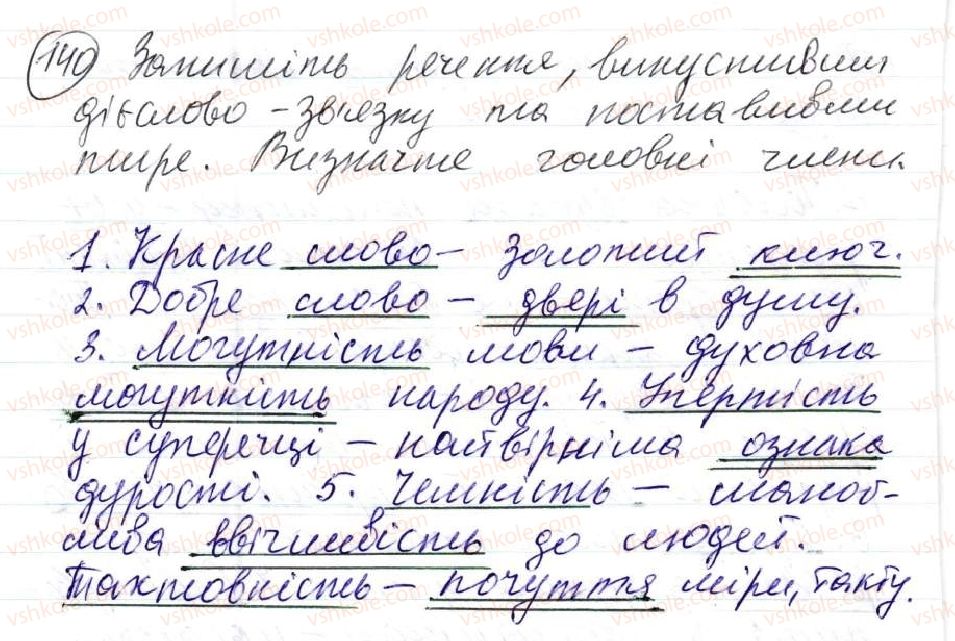 140 Запишіть речення, випустивши
дієслово - зв'язку та поставивши
тире. Визначте головні члени
1. Красне слово - золотий ключ.
2. Добре слово - двері в душу.
3. Могутність мови - духовна
могутність народу. 4. Упертість
у суперечці - найвірніша ознака
дурості. 5. Чемність - шаноб-
лива ввічливість до людей.
Тактовність - почуття міри, такту.